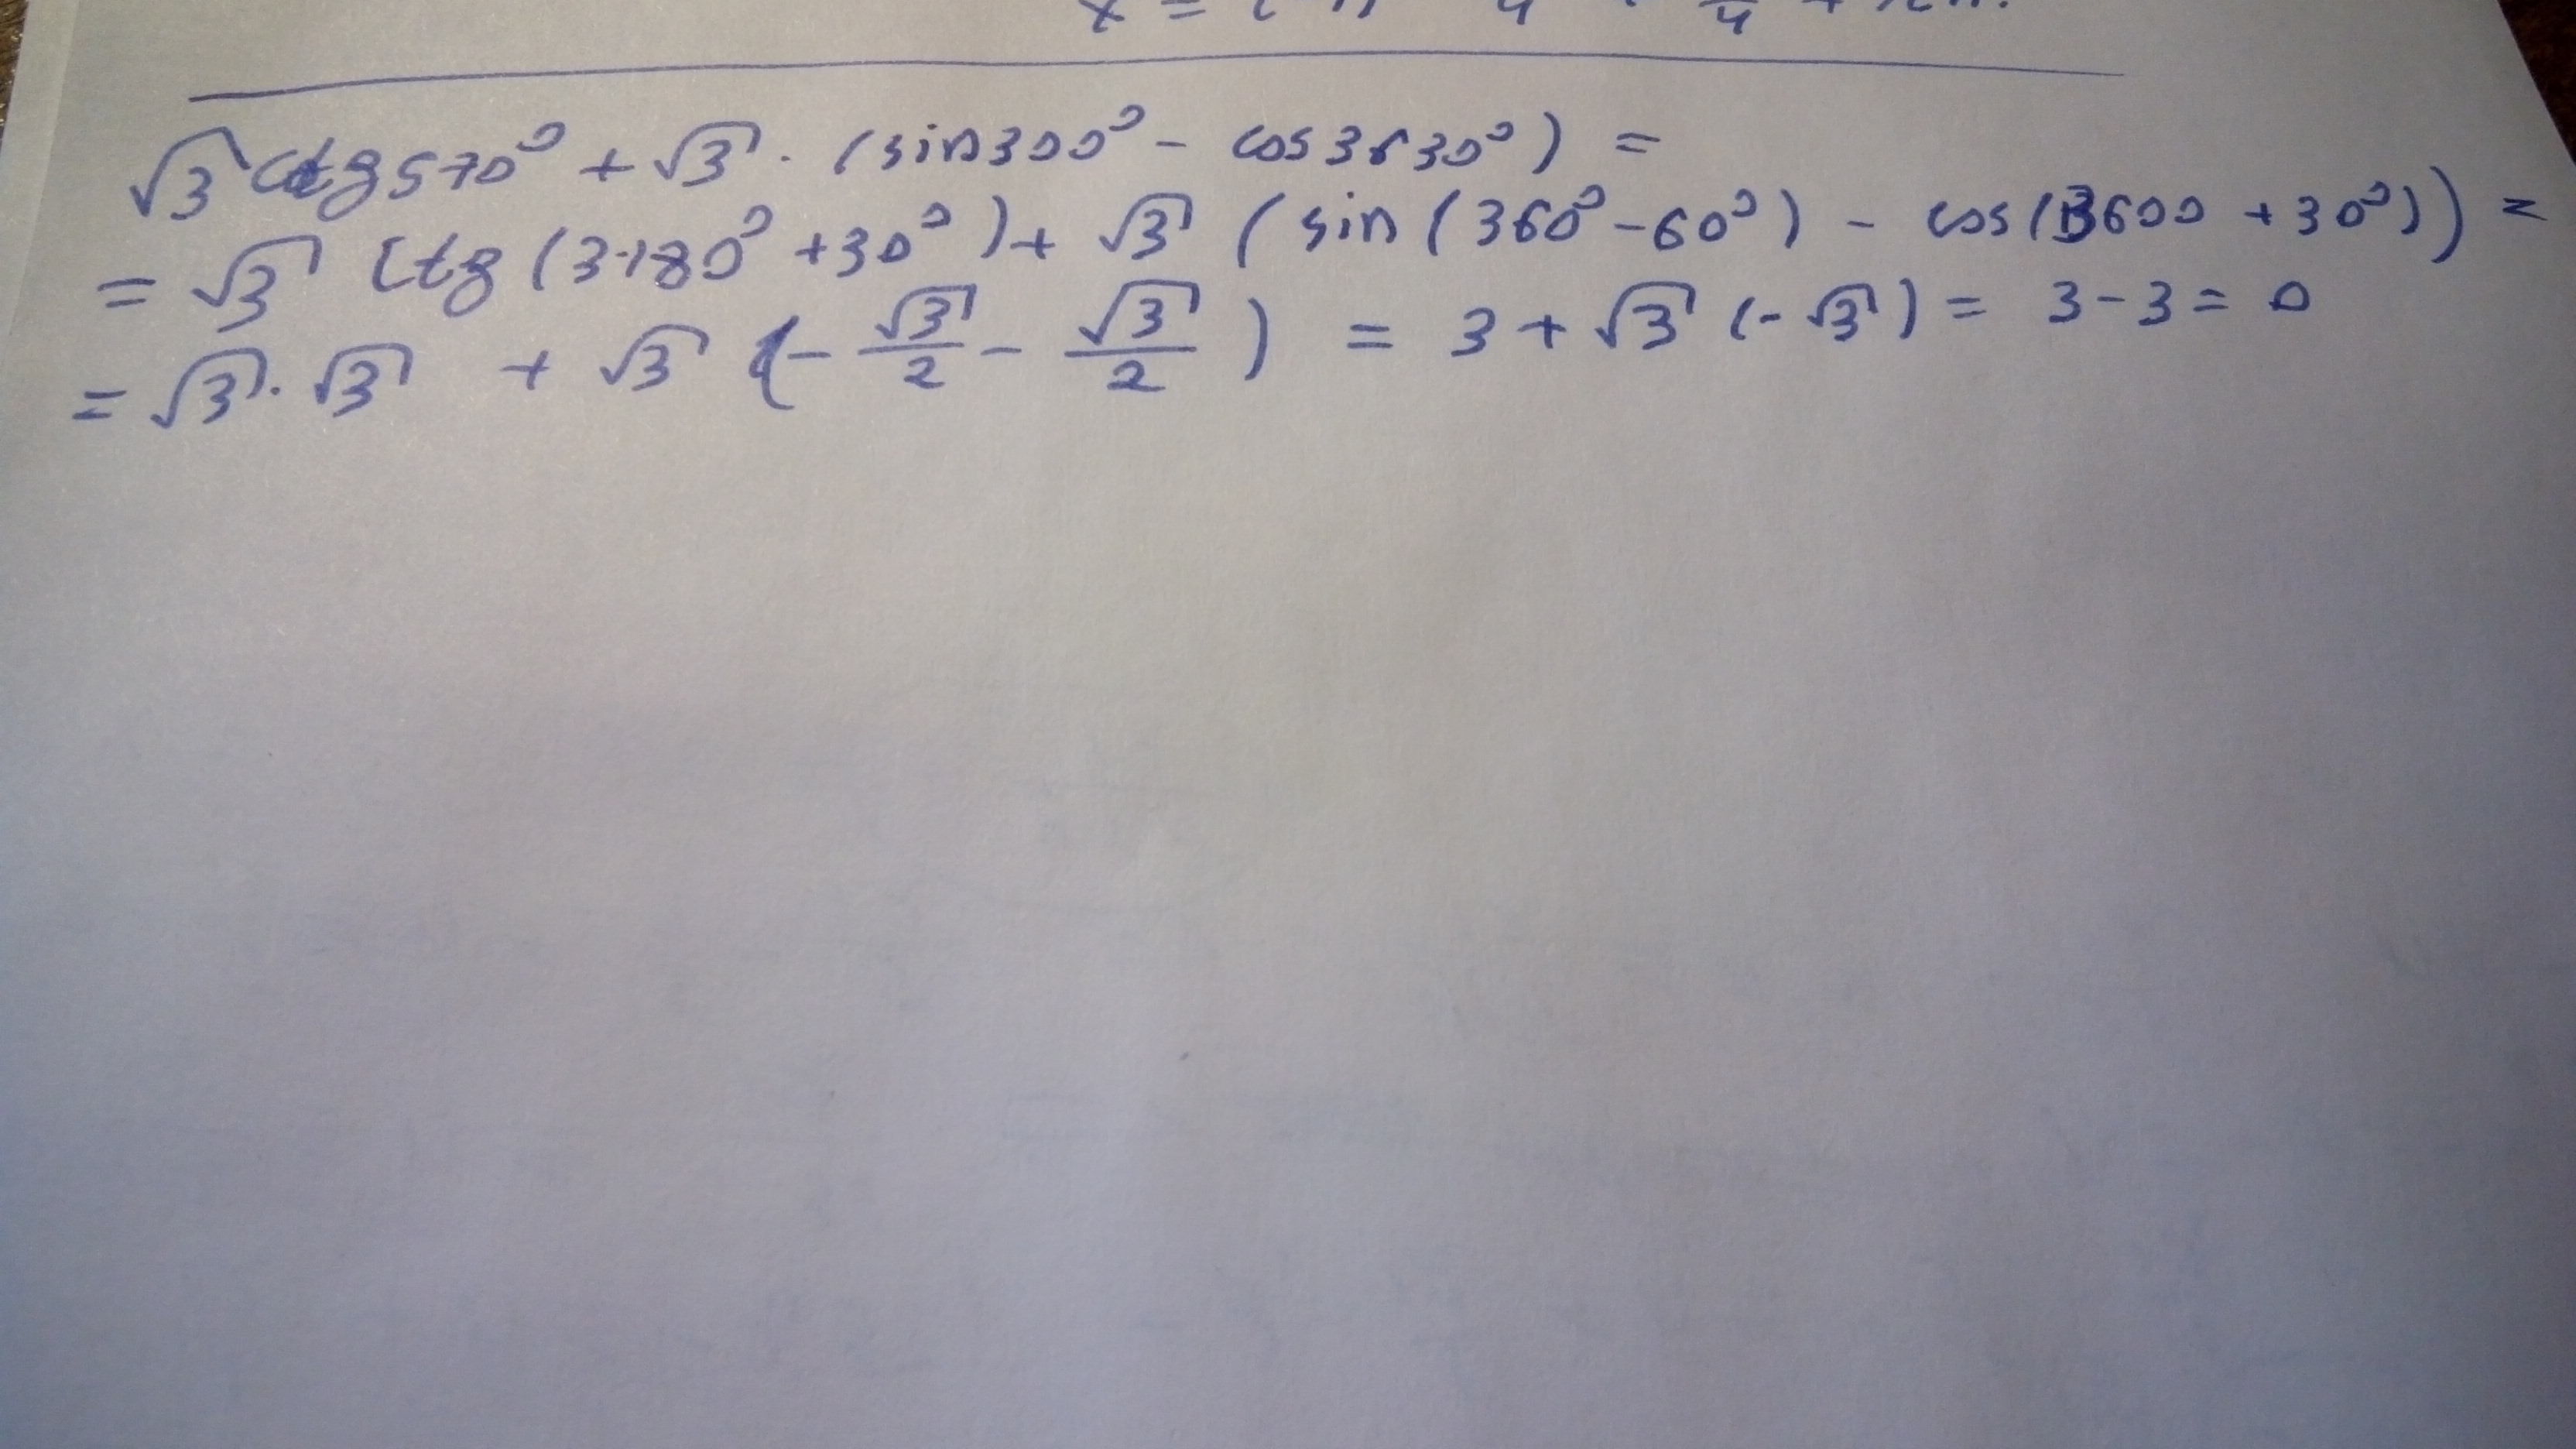 √3 ctg 570° + √3 · (sin 300° - cos 3630°) =
= √3 ctg (3·180° + 30°) + √3 (sin (360° - 60°) - cos (3600 + 30°)) =
= √3 · √3 + √3 (- √3/2 - √3/2) = 3 + √3 (- √3) = 3 - 3 = 0